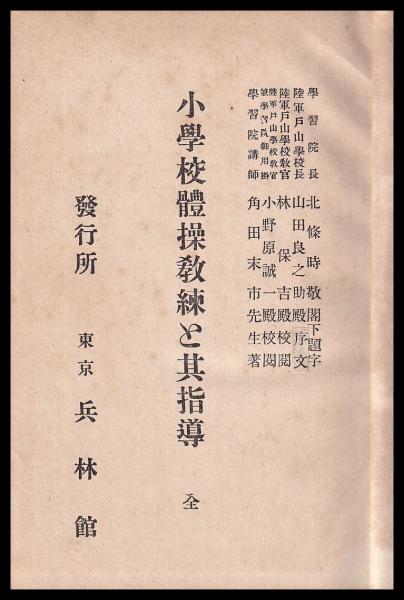 學習院長 北條時敬閣下題字
陸軍戸山學校長 山田良之助殿序文
陸軍戸山學校教官 林保吉殿校閲
陸軍戸山學校教官 學習院御用掛 小野原誠一殿校閲
學習院講師 角田末市先生著
小學校體操教練と其指導 全
發行所 東京 兵林館